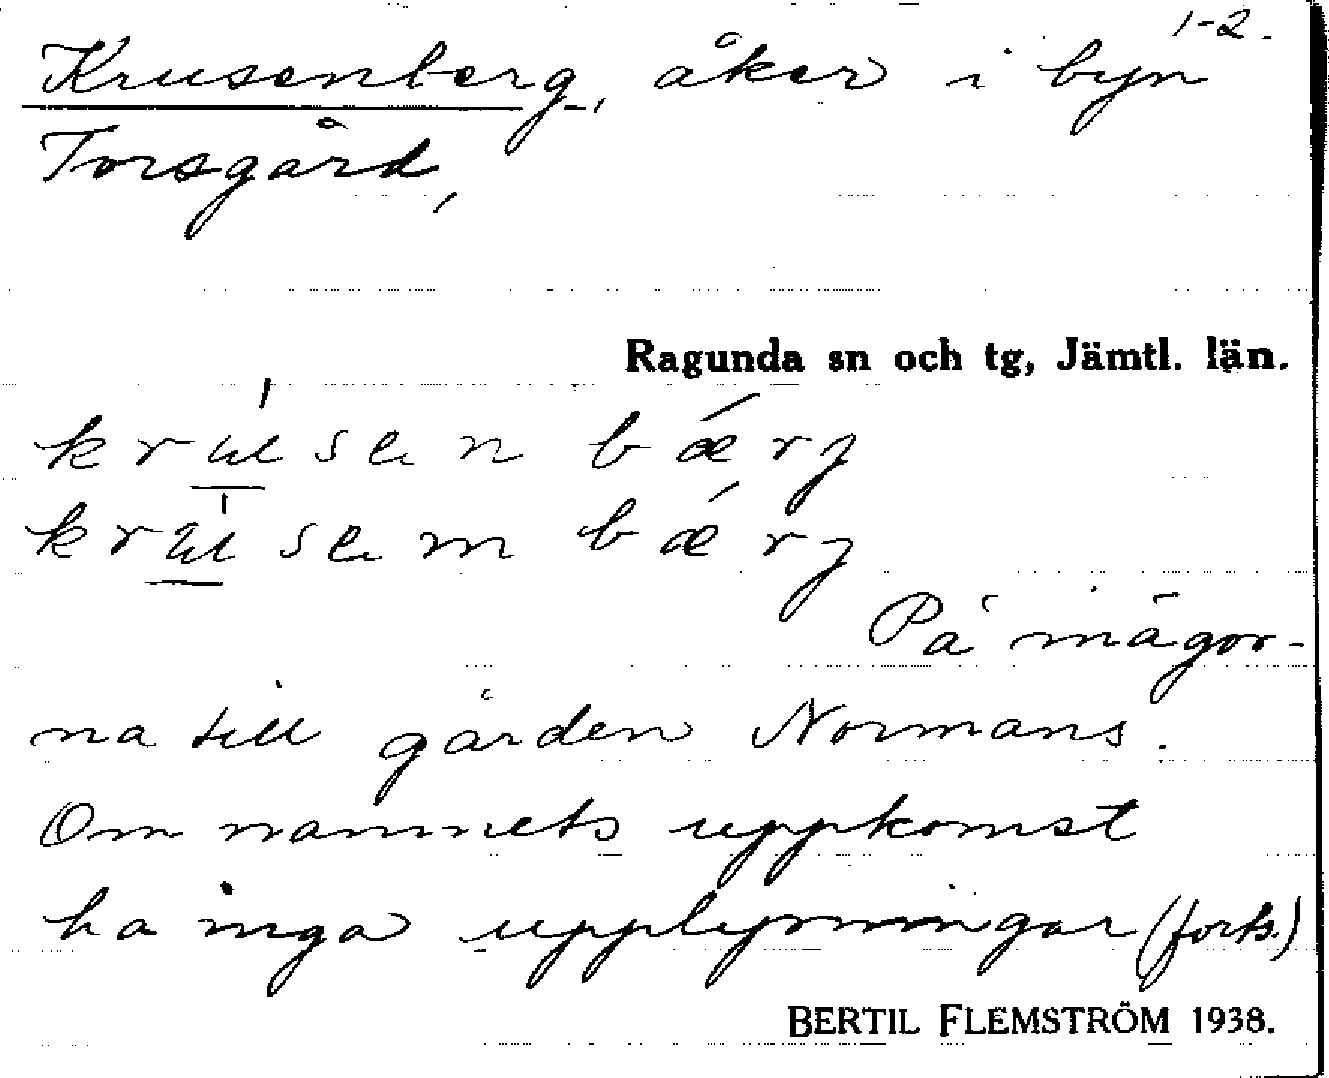 1-2.
Krusenberg, åker i byn
Torsgård,
Ragunda sn och tg, Jämtl. län.
På mägor-
na till gården Normans.
Om namnets uppkomst
ha inga upplysningar (forts.)
BERTIL FLEMSTRÖM 1938.